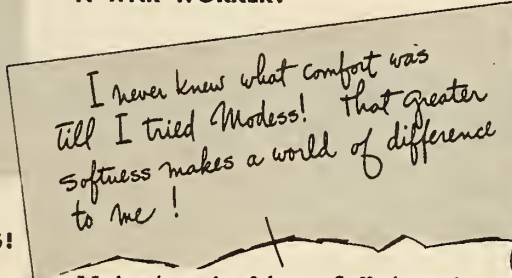 I never knew what comfort was
till I tried Modess! That greater
softness makes a world of difference
to me!
S!